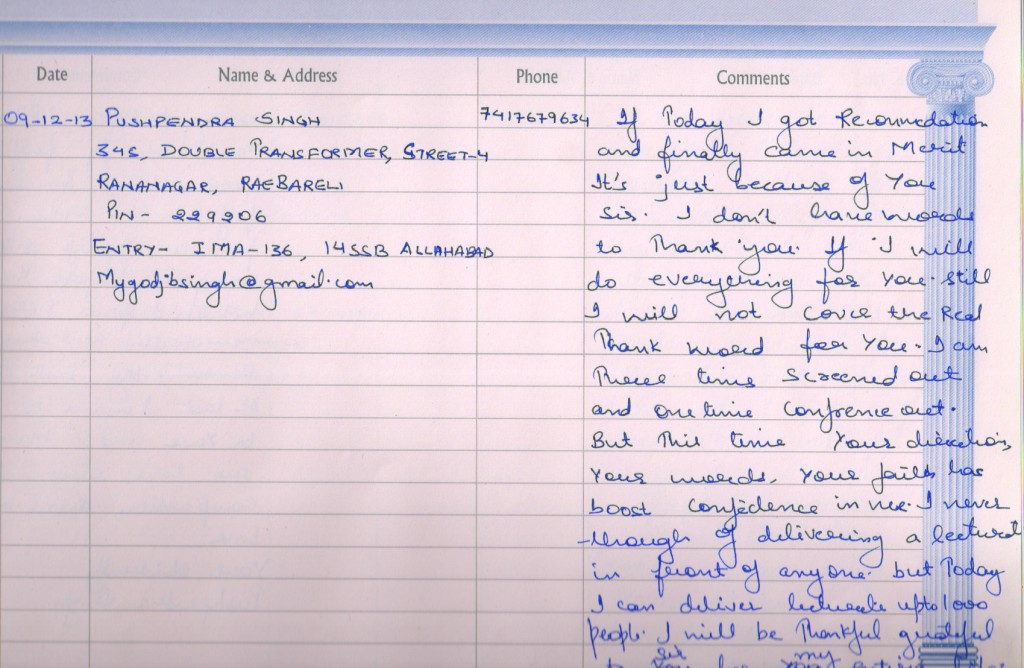 Date Name & Address Phone Comments
09-12-13 PUSHPENDRA SINGH 7417679634 If Today I got Recommedation
345, DOUBLE TRANSFORMER, STREET-4 and finally came in Merit
RANANAGAR, RAEBARELI It's just because of You
PIN- 229206 Sir. I don't have words
ENTRY- IMA-136, 14SSB ALLAHABAD to Thank you. If I will
Mygodjbsingh@gmail.com do everything for You. still
I will not cover the Real
Thank word for You. I am
Three time Screened out
and one time Confrence out.
But This time Your direction,
Your words, Your faith has
boost confidence in me. I never
through of delivering a lecture
in front of anyone. but Today
I can deliver upto 1000
people. I will be Thankful grateful
Sir my